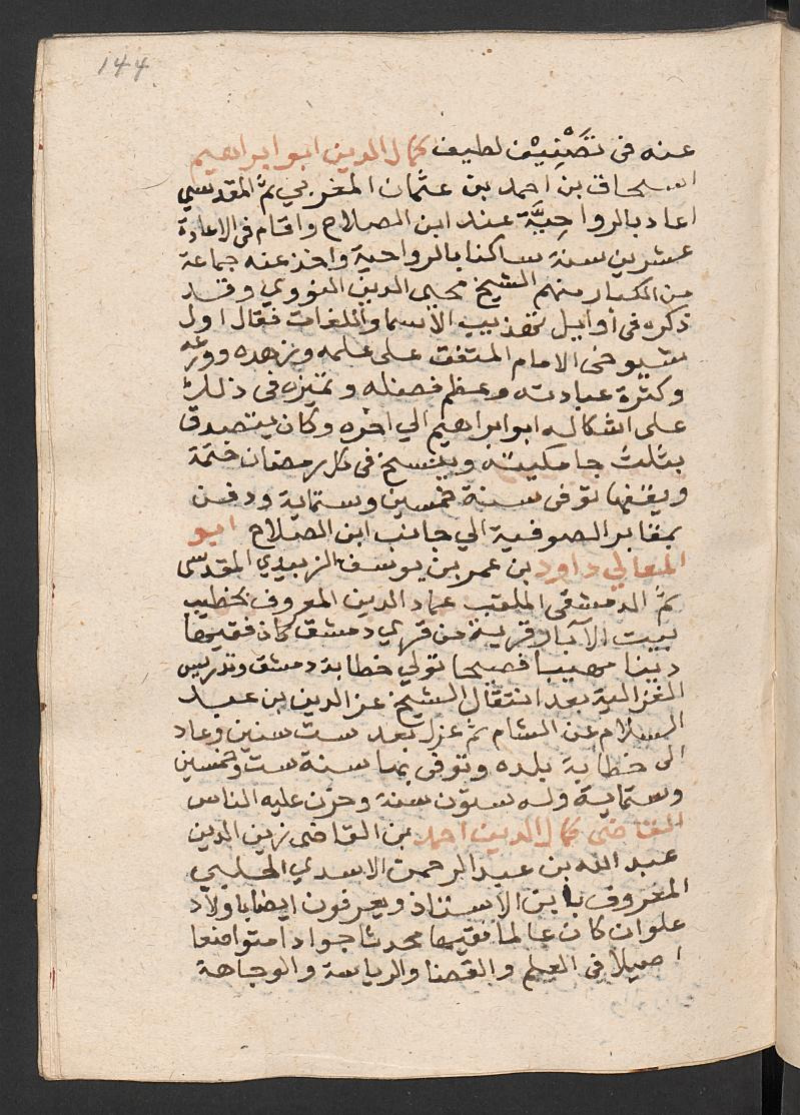 144
عنه فى تَصْنِيْف لطيف كمال الدين ابو ابراهيم
اسحاق بن احمد بن عثمان المغربي ثمّ المقدسي
اعاد بالرواحِيَّة عند ابن الصلاح واقام فى الاعادة
عشرين سنة ساكنا بالرواحية واخذ عنه جماعة
من الكبار منهم الشيخ محيى الدين النووي وقد
ذكره فى أوايل تهذيب الأسما واللغات فقال اول
شيوخى الامام المتفق على علمه وزهده وورعه
وكثرة عبادته وعظم فضله وتميزه فى ذلك
على اشكاله ابو ابراهيم الي اخره وكان يتصدق
بثلث جامكيته وينسخ فى كل رمضان ختمة
ويقفها توفى سنة خمسين وستماية ودفن
بمقابر الصوفية الي جانب ابن الصّلاح ابو
المعالي داود بن عمر بن يوسف الزبيدي المقدسى
ثمّ الدمشقى الملقب عماد الدين المعروف بخطيب
بيت الآبار قرية من قري دمشق كان فقيها
دينا مهيبا فصيحا تولي خطابة دمشق وتدريس
الغزالية بعد انتقال الشيخ عز الدين بن عبد
السلام عن الشام ثمّ عزل بعد ست سنين وعاد
الى خطابة بلده وتوفى بها سنة ست وخمسين
وستماية وله ستون سنة وحزن عليه الناس
القاضى كمال الدين احمد بن القاضى زين الدين
عبد الله بن عبد الرحمن الاسدي الحلبي
المعروف بابن الأستاذ ويعرفون ايضا باولاد
علوان كان عالما فقيها محدثا جوادا متواضعا
اصيلا فى العلم والقضا والرياسة والوجاهة